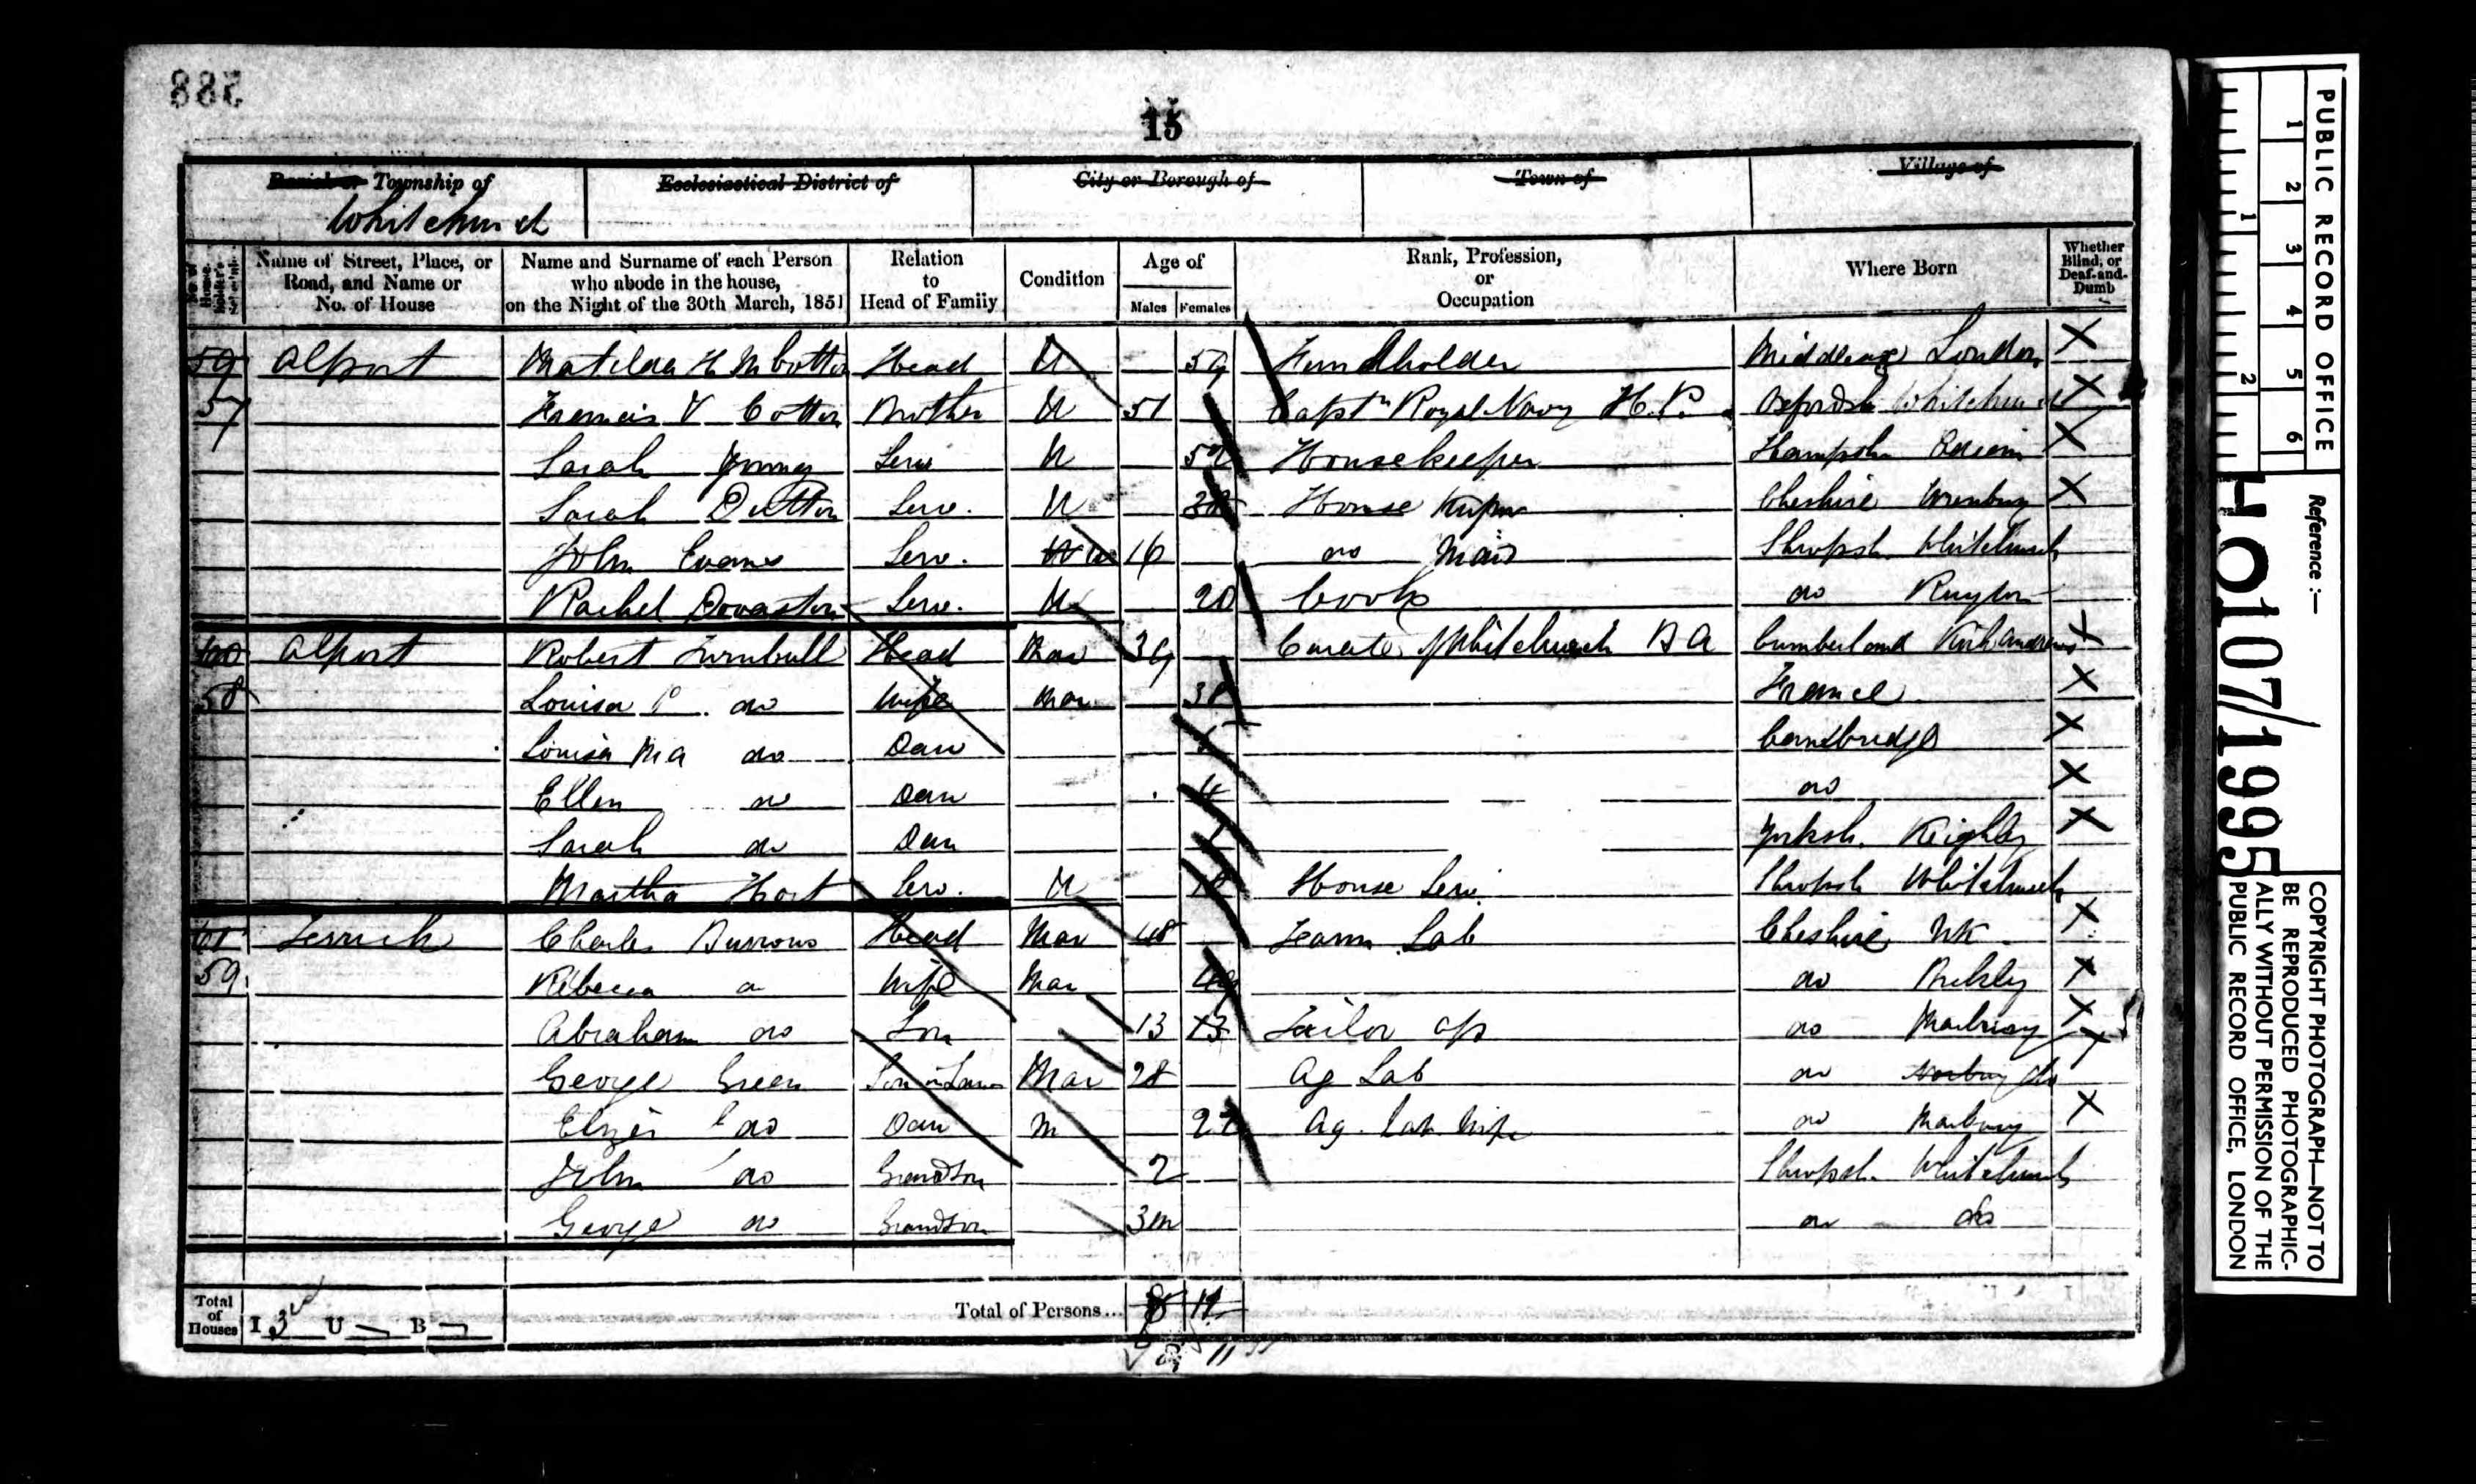 588
15
Parish or Township of
Whitechurch
Ecclesiastical District of
City or Borough of
Town of
Village of
No. of House-holder's Schedule
Name of Street, Place, or Road, and Name or No. of House
Name and Surname of each Person who abode in the house, on the Night of the 30th March, 1851
Relation to Head of Family
Condition
Age of
Males
Females
Rank, Profession, or Occupation
Where Born
Whether Blind, or Deaf-and-Dumb
59 57 Alport Matilda H M Cotton Head U 59 Fundholder Middlesex London X
Francis V Cotton Brother U 51 Captn Royal Navy H.P. Oxfordsh Whitchurch X
Sarah Young Serv U Housekeeper Hampsh Odium X
Sarah Dutton Serv. U House Cheshire Wrenbury X
John Evans Serv. U 16 do Maid Shropsh Whitchurch
Rachel Dovaston Serv. U 20 Cook do Ruyton
60 58 Alport Robert Turnbull Head Mar 39 Curate of Whitchurch B A Cumberland Kirkandrews X
Louisa P. do Wife Mar 38 France X
Louisa M A do Dau 5 Cambridge X
Ellen do Dau 4 do X
Sarah do Dau 1 Yorksh. Keighly X
Martha Hart Serv. U 18 House Serv. Shropsh Whitchurch
61 59 Terrick Charles Burrows Head Mar 48 Farm Lab Cheshire NK X
Rebecca do Wife Mar 49 do Bickley X
Abraham do Son 13 13 Tailor Ap do Marbury X
George Green Son in Law Mar 28 Ag Lab do Norbury do X
do Dau M 27 Ag. Lab Wife do Marbury X
John do Grandson 2 Shropsh. Whitchurch
George do Grandson 3m do do
Total of Houses I 3 U B
Total of Persons... 8 11
8 11
PUBLIC RECORD OFFICE
1 2 3 4 5 6
1 2
Reference :—
HO107/1995
COPYRIGHT PHOTOGRAPH—NOT TO
BE REPRODUCED PHOTOGRAPHIC-
ALLY WITHOUT PERMISSION OF THE
PUBLIC RECORD OFFICE, LONDON